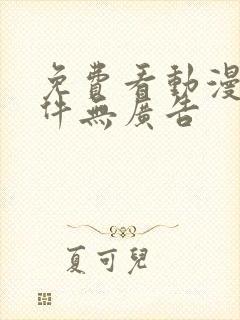 免費看動漫
件無廣告
夏可兒